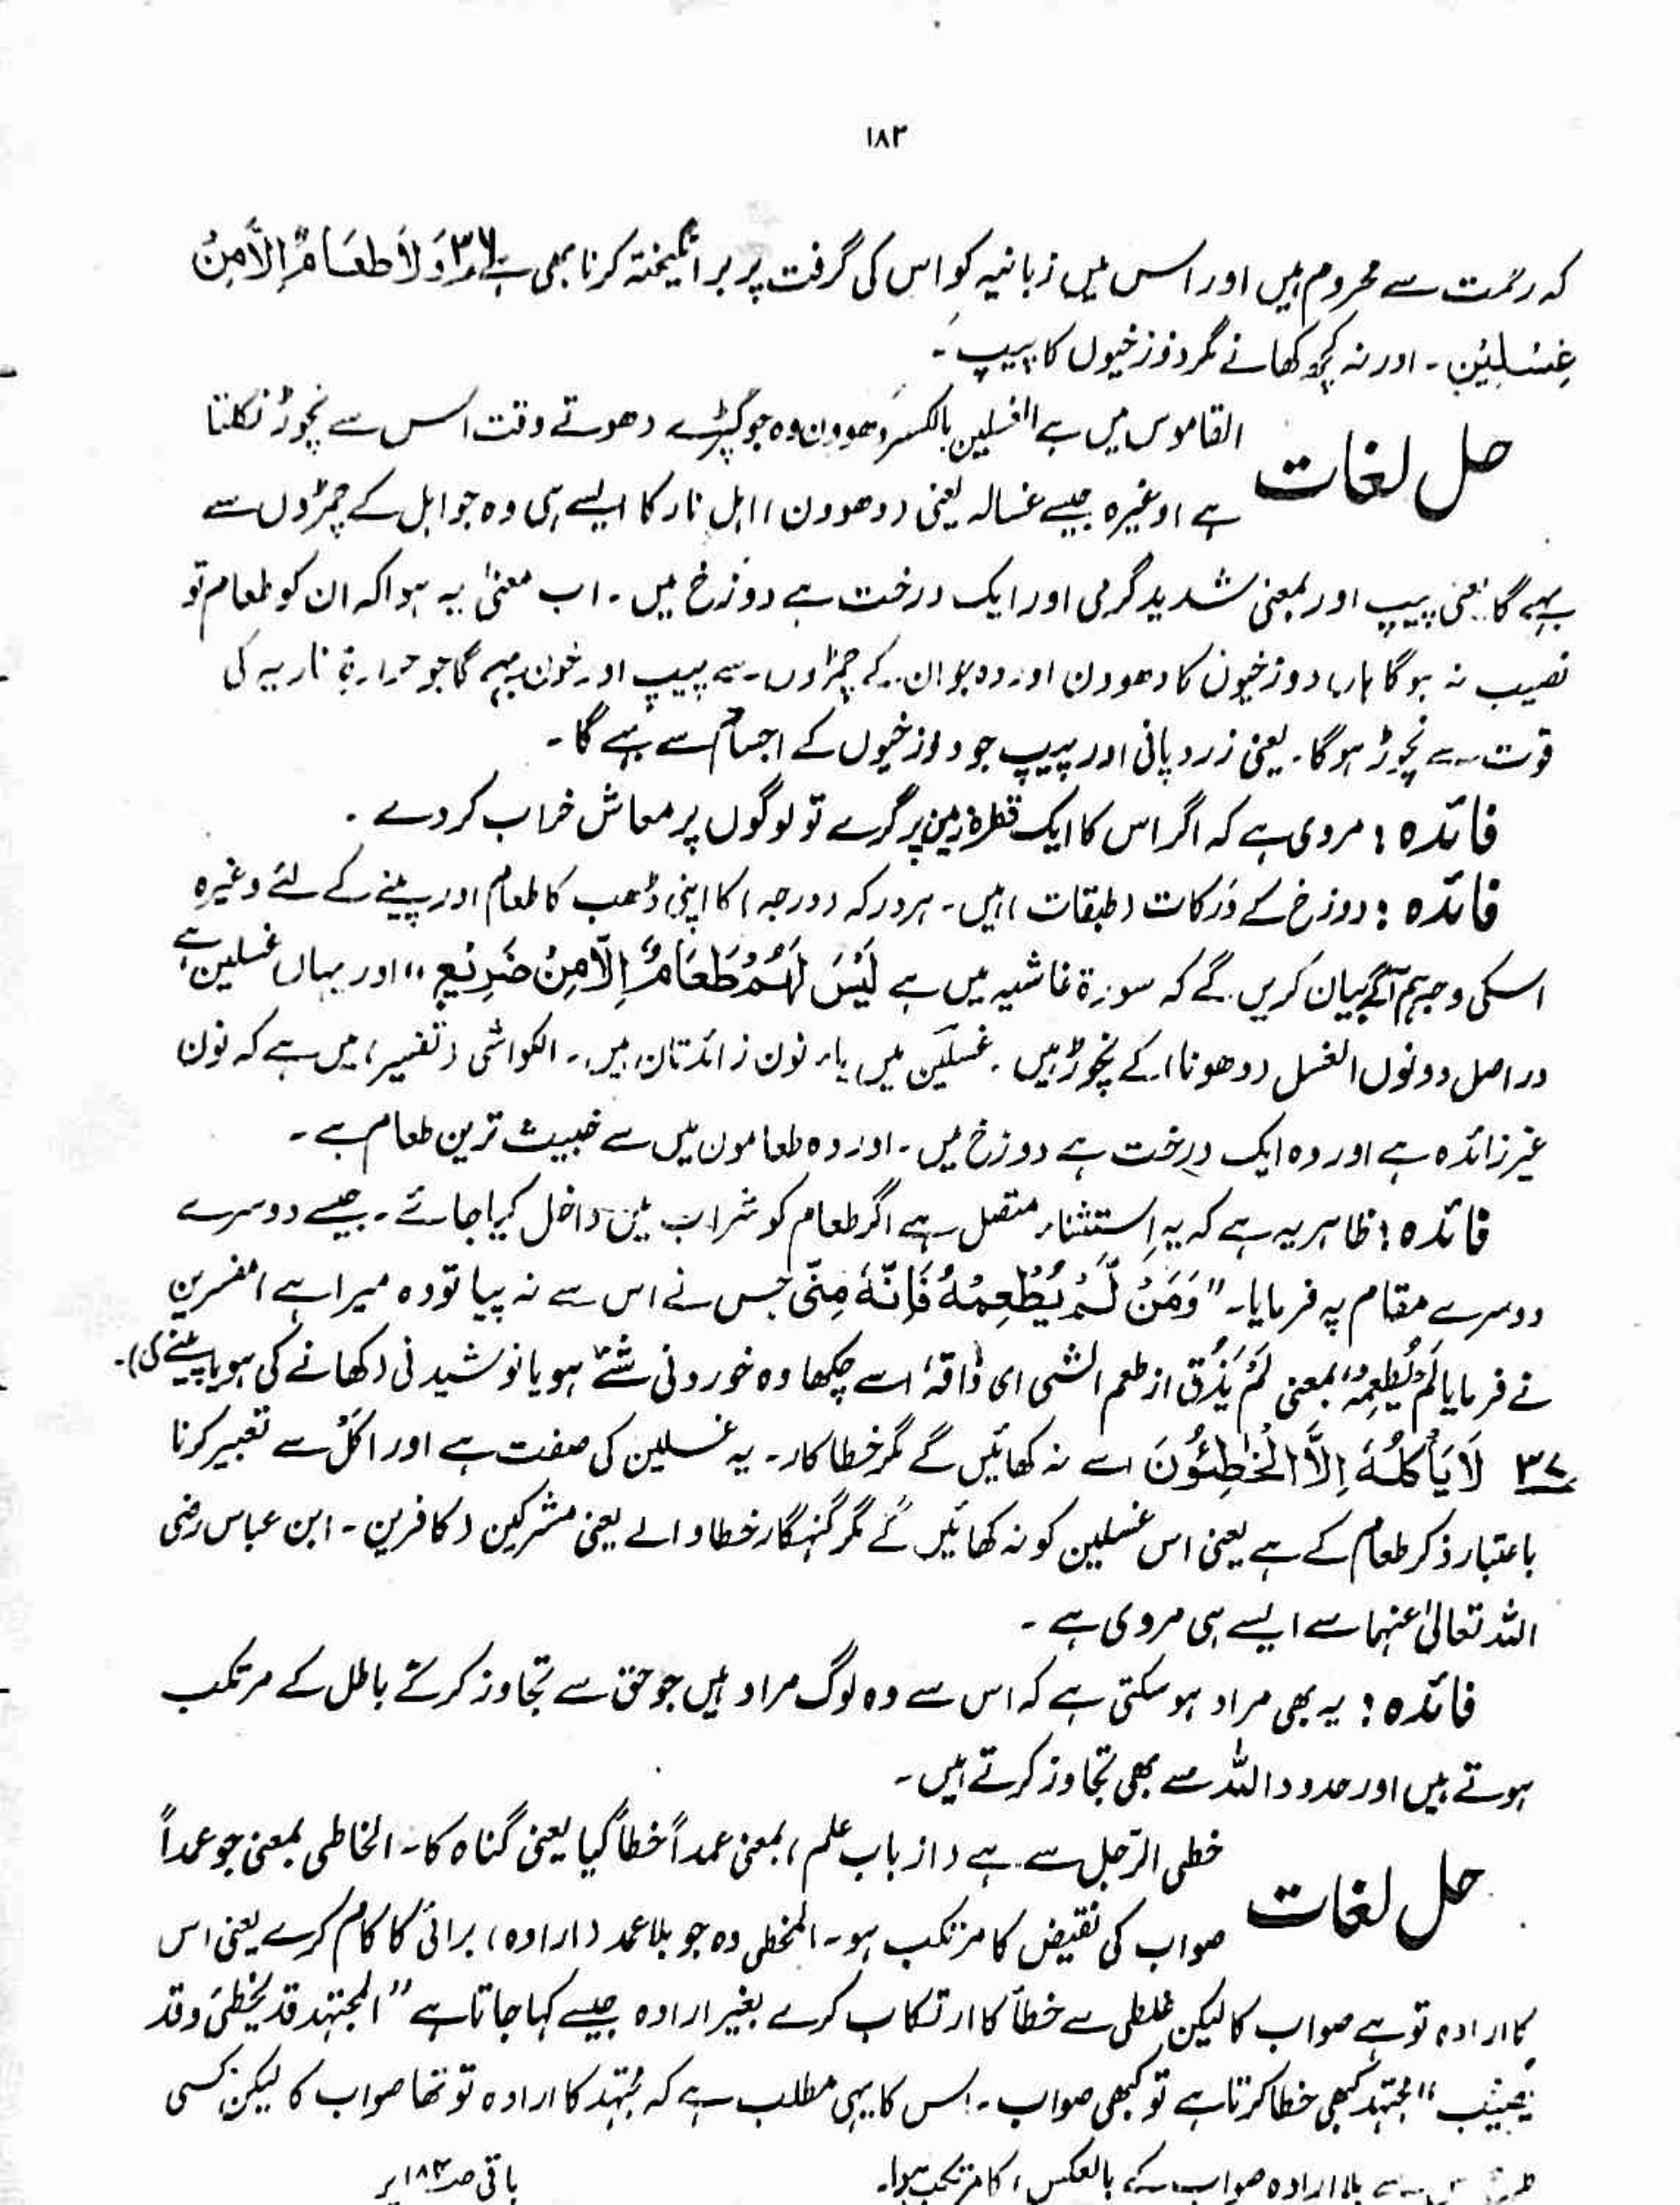 ۱۸۳
کہ رحمت سے محروم ہیں اور اس میں زبانیہ کو اس کی گرفت پر برانگیختہ کرنا بھی ہے ۳۶ وَلَا طَعَامٌ اِلَّا مِنْ
غِسْلِیْنٍ ۔ اور نہ کچھ کھانے مگر دوزخیوں کا پیپ ۔
حل لغات القاموس میں ہے الغسلین بالکسر دھوون وہ جو کپڑے دھوتے وقت اس سے نچوڑ نکلتا
ہے اوغیرہ جیسے غسالہ یعنی (دھوون) اہل نار کا ایسے ہی وہ جو ابل کے چمڑوں سے
بہے گا یعنی پیپ اور بمعنی شدید گرمی اور ایک درخت ہے دوزخ میں ۔ اب معنیٰ یہ ہوا کہ ان کو طعام تو
نصیب نہ ہوگا ہاں دوزخیوں کا دھوون اور وہ جو ان کے چمڑوں سے پیپ اور خون بہے گا جو حرارۃ ناریہ کی
قوت سے نچوڑ ہوگا ۔ یعنی زرد پانی اور پیپ جو دوزخیوں کے اجسام سے بہے گا ۔
فائدہ : مروی ہے کہ اگر اس کا ایک قطرہ زمین پر گرے تو لوگوں پر معاش خراب کر دے ۔
فائدہ : دوزخ کے دَرکات (طبقات) ہیں ۔ ہر درکہ (درجہ) کا اپنی ڈھب کا طعام اور پینے کے لئے وغیرہ
اسکی وجہ ہم آگے بیان کریں گے کہ سورۃ غاشیہ میں ہے لَیْسَ لَہُمْ طَعَامٌ اِلَّا مِنْ ضَرِیْعٍ ،، اور یہاں غسلین ہے
دراصل دونوں الغسل (دھونا) کے نچوڑ ہیں ۔ غسلین میں یاء نون زائدتان ہیں ۔ الکواشی (تفسیر) میں ہے کہ نون
غیر زائدہ ہے اور وہ ایک درخت ہے دوزخ میں ۔ اور وہ طعاموں میں سے خبیث ترین طعام ہے ۔
فائدہ : ظاہر یہ ہے کہ یہ اِستثناء متصل ہے اگر طعام کو شراب میں داخل کیا جائے ۔ جیسے دوسرے
دوسرے مقام پہ فرمایا ۔ " وَمَنْ لَّمْ یُطْعِمْہُ فَاِنَّہٗ مِنِّی جس نے اس سے نہ پیا تو وہ میرا ہے امفسرین
نے فرمایا لَمْ یُطْعِمْہُ بمعنی لَمْ یَذُق از طعم الشی ای ذاقہٗ اسے چکھا وہ خوردنی شئے ہو یا نوشیدنی (کھانے کی ہو یا پینے کی) ۔
۳۷ لَا یَاْکُلُہٗ اِلَّا الْخٰطِئُوْنَ اسے نہ کھائیں گے مگر خطاکار ۔ یہ غسلین کی صفت ہے اور اکل سے تعبیر کرنا
باعتبار ذکر طعام کے ہے یعنی اس غسلین کو نہ کھائیں گے مگر گنہگار خطا والے یعنی مشرکین (کافرین ۔ ابن عباس رضی
اللہ تعالیٰ عنہما سے ایسے ہی مروی ہے ۔
فائدہ : یہ بھی مراد ہو سکتی ہے کہ اس سے وہ لوگ مراد ہیں جو حق سے تجاوز کرتے باطل کے مرتکب
ہوتے ہیں اور حدود اللہ سے بھی تجاوز کرتے ہیں ۔
حل لغات خطی الرّجل سے ہے (از باب علم) بمعنی عمداً خطأ کیا یعنی گناہ کا ۔ الخاطی بمعنی جو عمداً
صواب کی نقیض کا مرتکب ہو ۔ المخطی وہ جو بلا عمد (ارادہ) برائی کا کام کرے یعنی اس
کا ارادہ تو ہے صواب کا لیکن غلطی سے خطأ کا ارتکاب کرے بغیر ارادہ جیسے کہا جاتا ہے " المجتہد قد یخطیٔ وقد
یصیب " مجتہد کبھی خطا کرتا ہے تو کبھی صواب ۔ اس کا یہی مطلب ہے کہ مجتہد کا ارادہ تو تھا صواب کا لیکن کسی
سے بلا ارادہ صواب کے بالعکس کا مرتکب ہوا ۔ باقی صـ ۱۸۴ پر